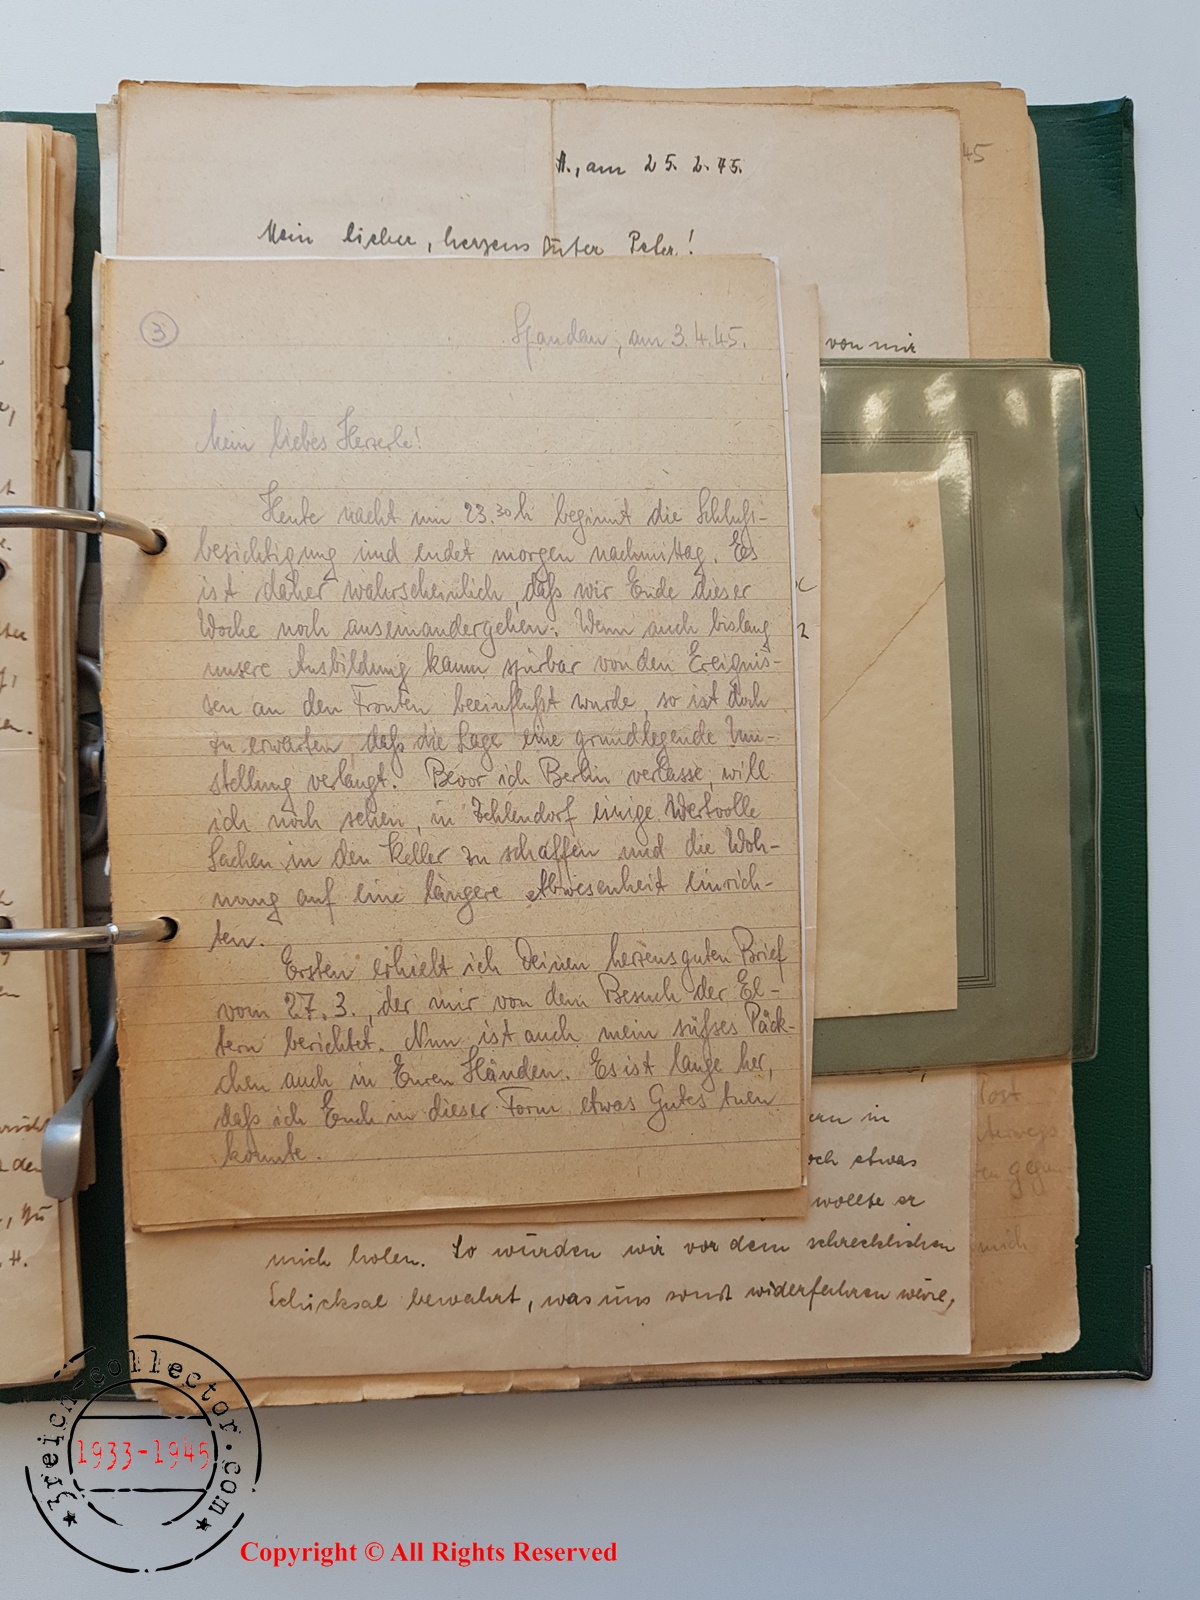 45
A., am 25. 2. 45.
Mein lieber, herzensguter Peter!
von mir
③
Spandau, am 3.4.45.
Mein liebes Herzerle!
Heute nacht um 23.30h beginnt die Schluß-
besichtigung und endet morgen nachmittag. Es
ist daher wahrscheinlich, daß wir Ende dieser
Woche noch auseinandergehen. Wenn auch bislang
unsere Ausbildung kaum spürbar von den Ereignis-
sen an den Fronten beeinflußt wurde, so ist doch
zu erwarten, daß die Lage eine grundlegende Um-
stellung verlangt. Bevor ich Berlin verlasse, will
ich noch sehen, in Zehlendorf einige wertvolle
Sachen in den Keller zu schaffen und die Woh-
nung auf eine längere Abwesenheit einrich-
ten.
Ersten erhielt ich Deinen herzensguten Brief
vom 27.3., der mir von dem Besuch der El-
tern berichtet. Nun ist auch mein süßes Päck-
chen auch in Euren Händen. Es ist lange her,
daß ich Euch in dieser Form etwas Gutes tuen
konnte.
Post
ern in
och etwas
gegen
wollte er
mich holen. So würden wir vor dem schrecklichen
mich
Schicksal bewahrt, was uns sonst widerfahren wäre,
3reich-collector.com
1933-1945
Copyright © All Rights Reserved